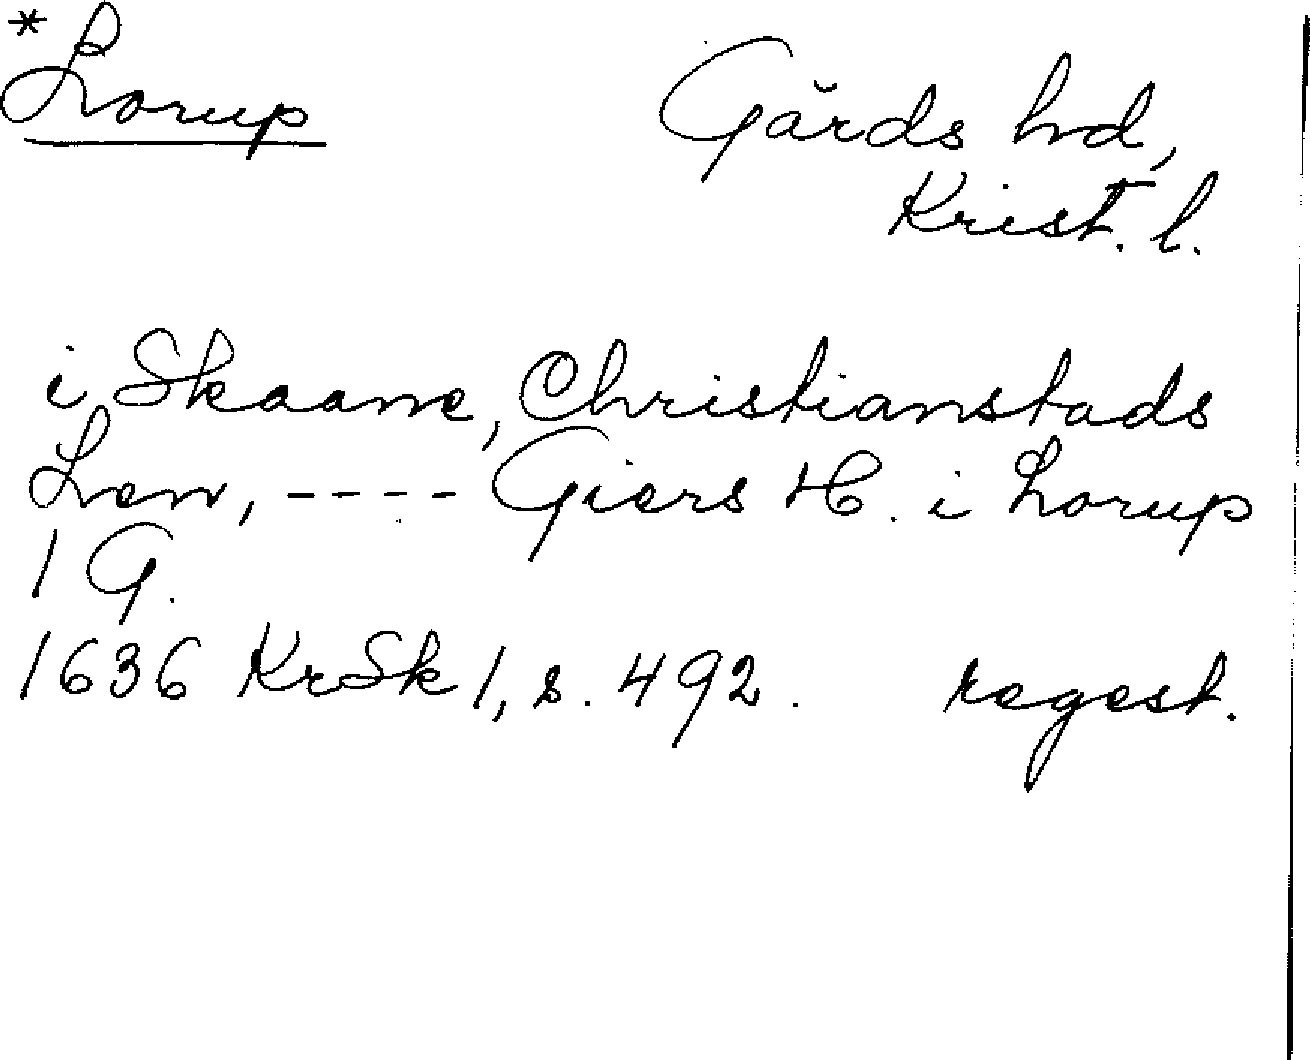 *Lorup
Gärds hd,
Krist. l.
i Skaane, Christianstads
Len, ---- Giers H. i Lorup
1 G.
1636 KrSk 1, s. 492. regest.